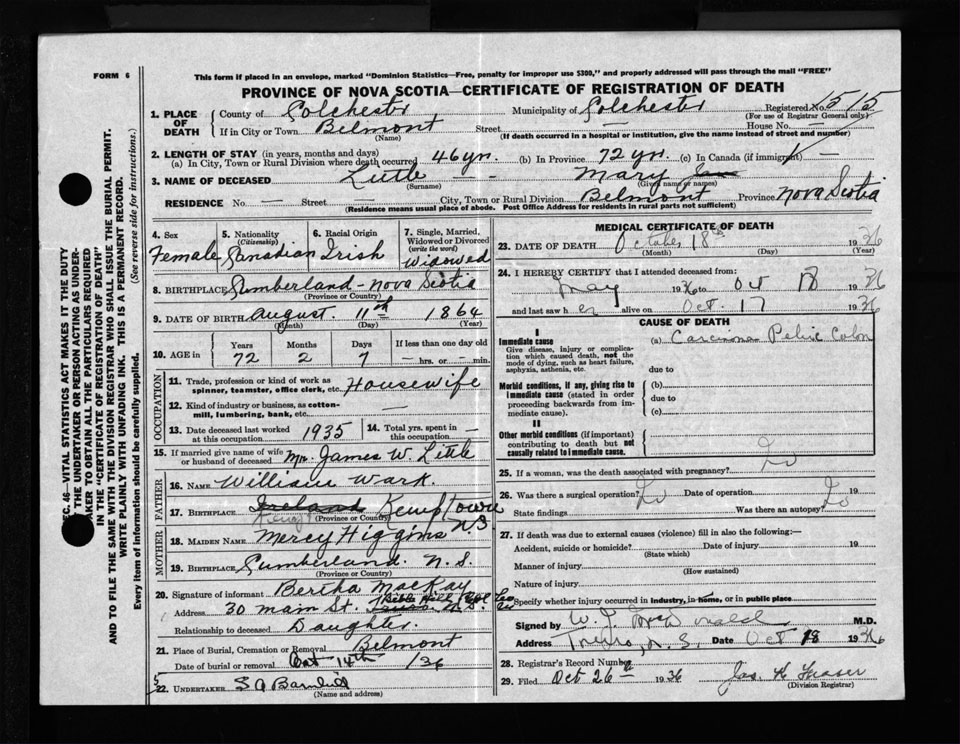 FORM 6
This form if placed in an envelope, marked "Dominion Statistics—Free, penalty for improper use $300," and properly addressed will pass through the mail "FREE"
PROVINCE OF NOVA SCOTIA—CERTIFICATE OF REGISTRATION OF DEATH
1. PLACE OF DEATH
County of Colchester Municipality of Colchester Registered No. 515
(For use of Registrar General only)
If in City or Town Belmont Street — House No. —
(Name) (If death occurred in a hospital or institution, give the name instead of street and number)
2. LENGTH OF STAY (in years, months and days)
(a) In City, Town or Rural Division where death occurred 46 yrs. (b) In Province 72 yrs. (c) In Canada (if immigrant) —
3. NAME OF DECEASED Little — — Mary Jane
(Surname) (Given name or names)
RESIDENCE No. — Street — City, Town or Rural Division Belmont Province Nova Scotia
(Residence means usual place of abode. Post Office Address for residents in rural parts not sufficient)
4. Sex Female
5. Nationality (Citizenship) Canadian
6. Racial Origin Irish
7. Single, Married, Widowed or Divorced (write the word) Widowed
8. BIRTHPLACE Cumberland - Nova Scotia
(Province or Country)
9. DATE OF BIRTH August. 11th 1864
(Month) (Day) (Year)
10. AGE in Years Months Days If less than one day old
72 2 7 — hrs. or — min.
OCCUPATION
11. Trade, profession or kind of work as spinner, teamster, office clerk, etc. Housewife
12. Kind of industry or business, as cotton-mill, lumbering, bank, etc. —
13. Date deceased last worked at this occupation 1935
14. Total yrs. spent in this occupation —
15. If married give name of wife or husband of deceased Mr. James W. Little
FATHER
16. NAME William Wark.
17. BIRTHPLACE Ireland Kemptown N.S
(Province or Country)
MOTHER
18. MAIDEN NAME Mercy Higgins
19. BIRTHPLACE Cumberland. N.S.
(Province or Country)
20. Signature of informant Bertha MacKay
Address 30 main St. Truro N.S. Bible Hill Col Co
Relationship to deceased Daughter.
21. Place of Burial, Cremation or Removal Belmont
Date of burial or removal Oct 14th /36
22. UNDERTAKER
(Name and address)
MEDICAL CERTIFICATE OF DEATH
23. DATE OF DEATH October 18th 1936
(Month) (Day) (Year)
24. I HEREBY CERTIFY that I attended deceased from:
May 1936 to Oct 18 1936
and last saw her alive on Oct. 17 1936
CAUSE OF DEATH
I
Immediate cause
Give disease, injury or complication which caused death, not the mode of dying, such as heart failure, asphyxia, asthenia, etc.
(a) Carcinoma Pelvic Colon
due to
Morbid conditions, if any, giving rise to immediate cause (stated in order proceeding backwards from immediate cause).
(b)
due to
(c)
II
Other morbid conditions (if important) contributing to death but not causally related to immediate cause.
25. If a woman, was the death associated with pregnancy? No
26. Was there a surgical operation? No Date of operation 19
State findings Was there an autopsy? No
27. If death was due to external causes (violence) fill in also the following:—
Accident, suicide or homicide? Date of injury 19
(State which)
Manner of injury
(How sustained)
Nature of injury
Specify whether injury occurred in industry, in home, or in public place
Signed by W. J. McDonald M.D.
Address Truro, N.S. Date Oct 18 1936
28. Registrar's Record Number
29. Filed Oct 26th 1936 Jas. H Fraser
(Division Registrar)
SEC. 46—VITAL STATISTICS ACT MAKES IT THE DUTY
OF THE UNDERTAKER OR PERSON ACTING AS UNDER-
TAKER TO OBTAIN ALL THE PARTICULARS REQUIRED
IN THE "CERTIFICATE OF REGISTRATION OF DEATH"
AND TO FILE THE SAME WITH THE DIVISION REGISTRAR WHO SHALL ISSUE THE BURIAL PERMIT.
WRITE PLAINLY WITH UNFADING INK. THIS IS A PERMANENT RECORD.
Every item of information should be carefully supplied. (See reverse side for instructions.)